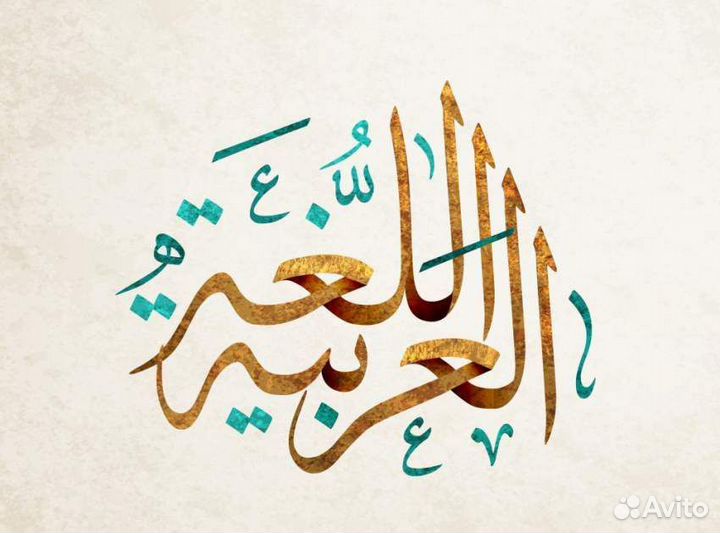 اللغة
العربية
Avito